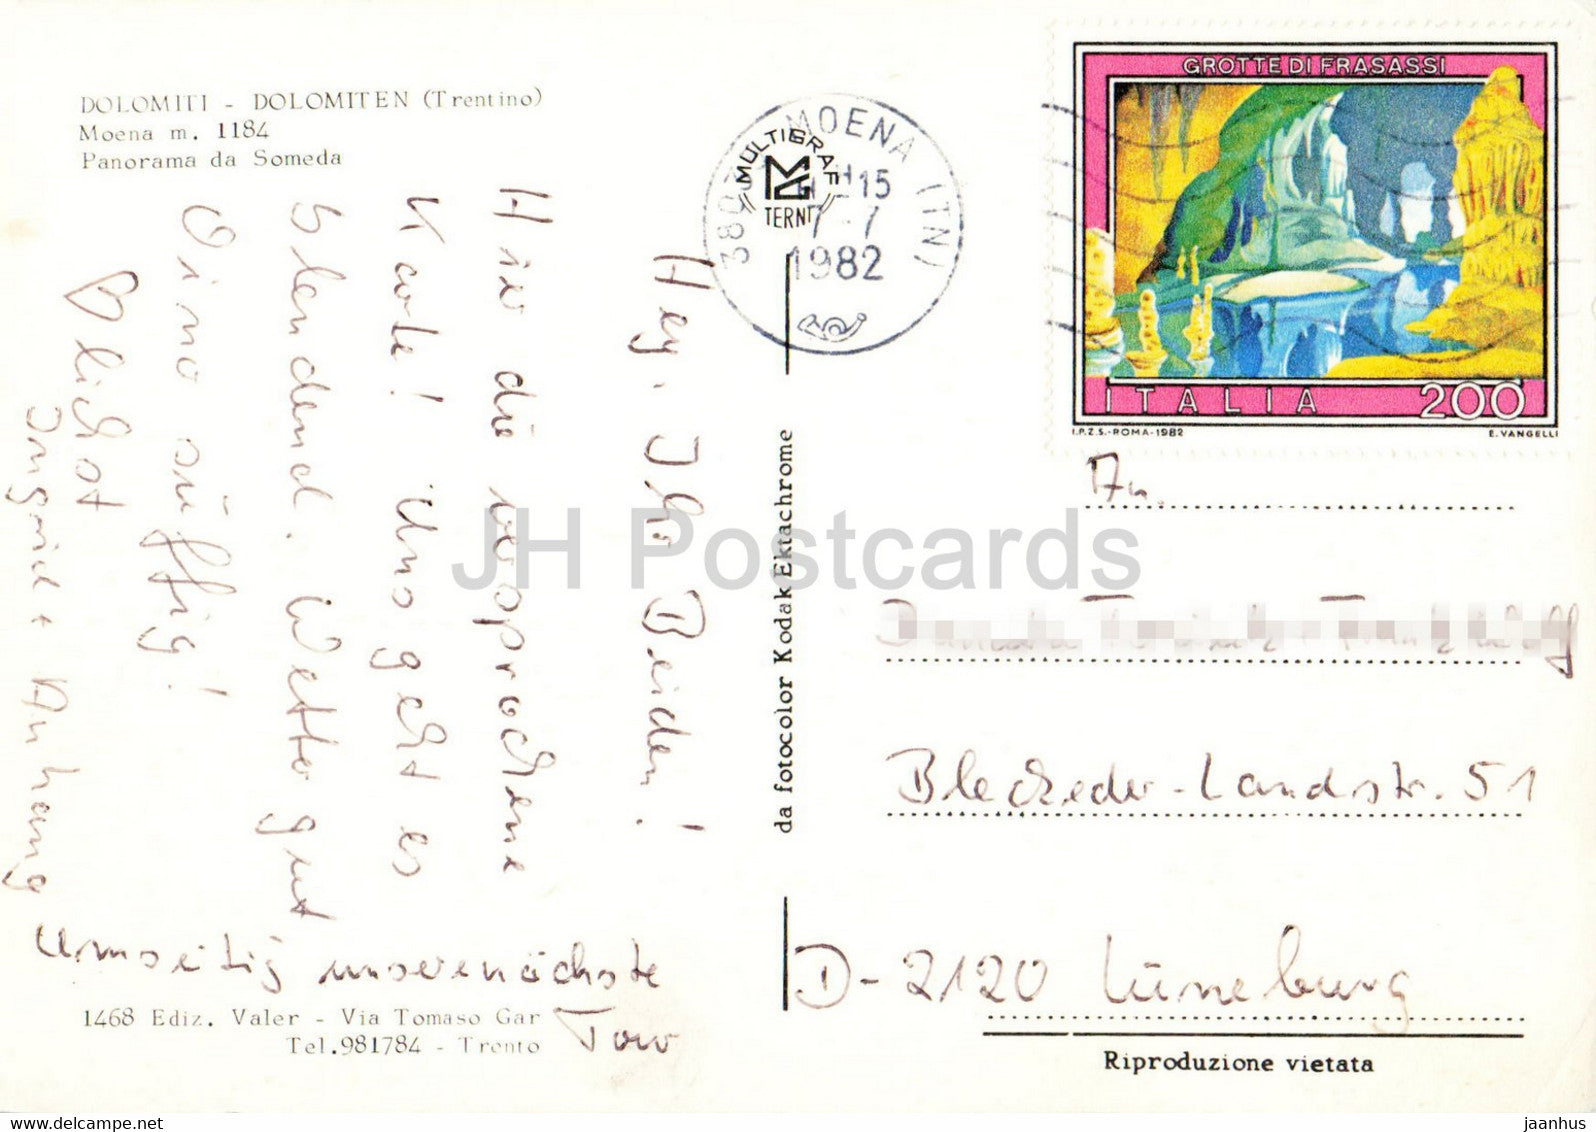 DOLOMITI - DOLOMITEN (Trentino)
Moena m. 1184
Panorama da Someda
MOENA (TN)
15
7-7
1982
«MULTIGRAF»
TERNI
GROTTE DI FRASASSI
ITALIA 200
I.P.Z.S.-ROMA-1982 E. VANGELLI
Hey, Ihr Beiden!
Hier die versprochene
Karte! Uns geht es
blendend. Wetter gut
Vino süffig!
Blickot
Ingrid + Anhang
Umseitig unsere nächste
Tour
1468 Ediz. Valer - Via Tomaso Gar
Tel.981784 - Trento
da fotocolor Kodak Ektachrome
An.
Bleckeder-Landstr. 51
D-2120 Lüneburg
Riproduzione vietata
JH Postcards
jaanhus